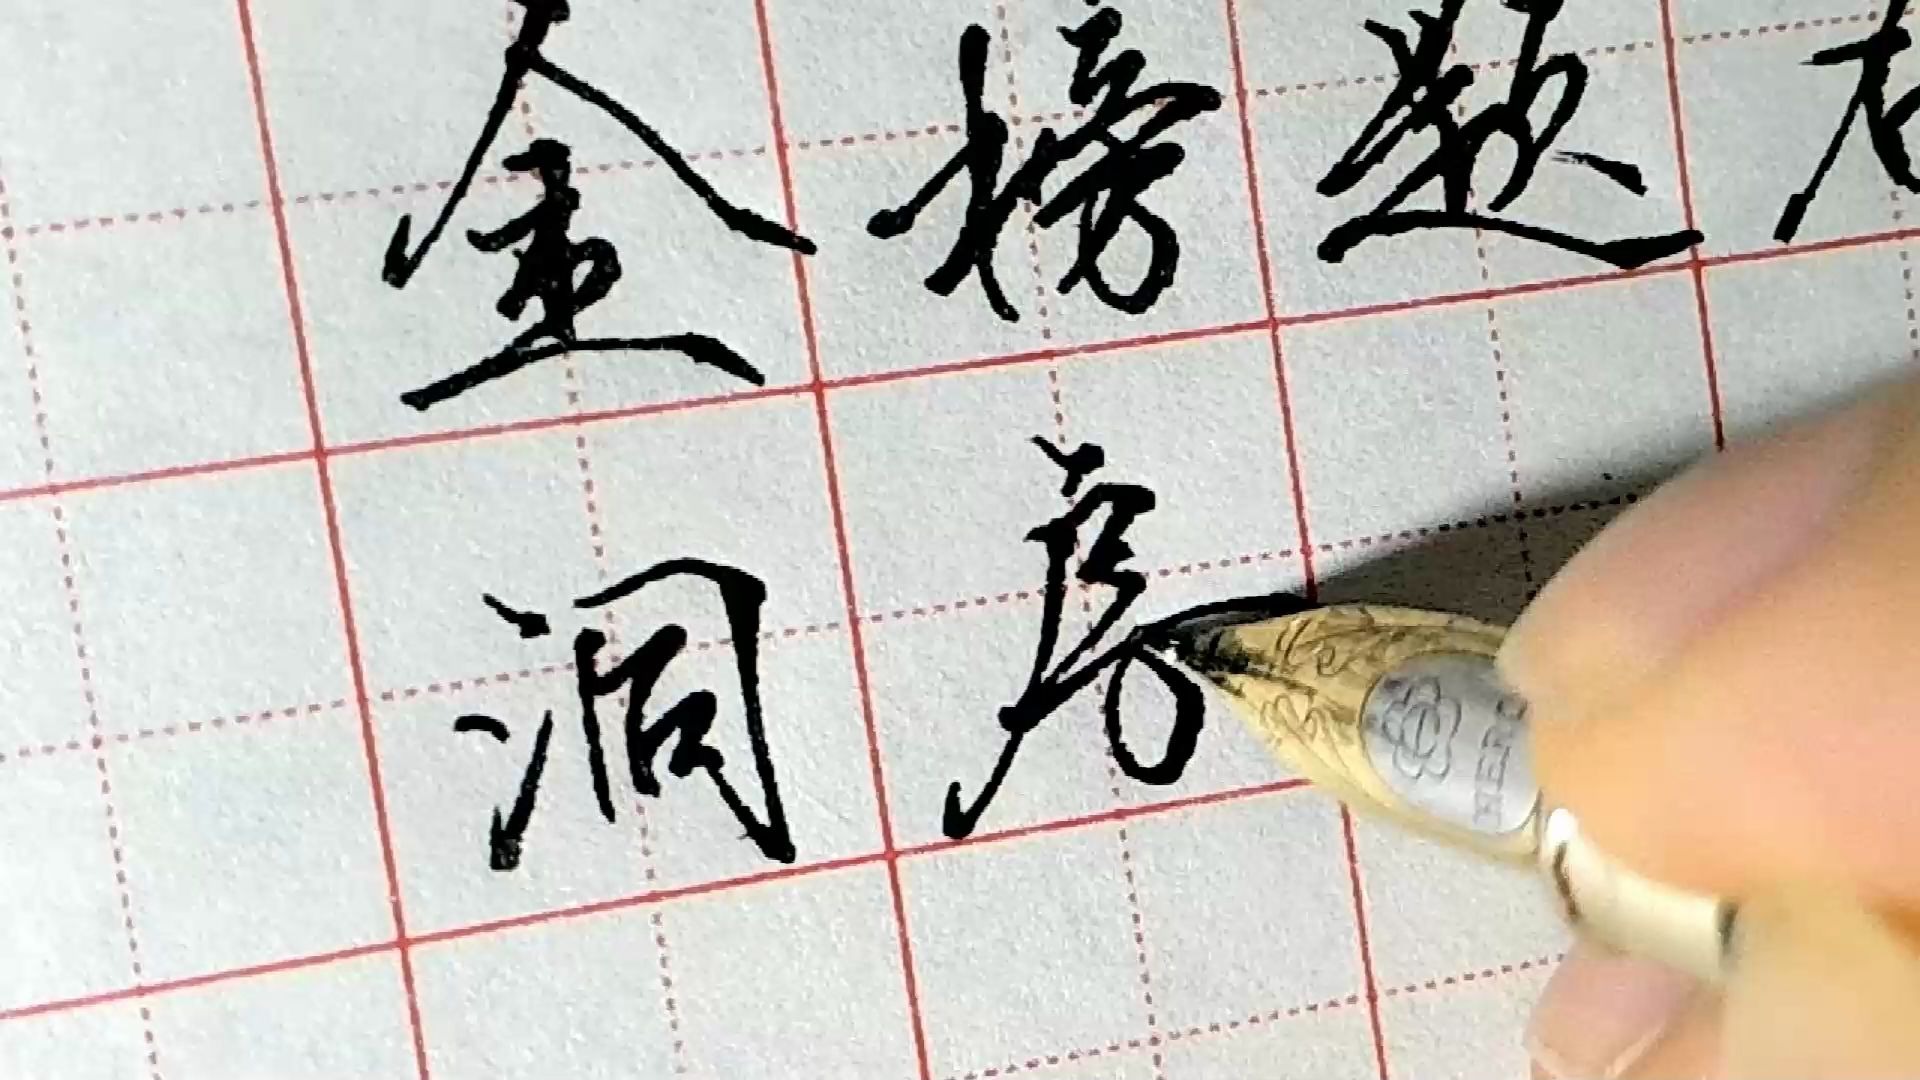 金榜题
洞房